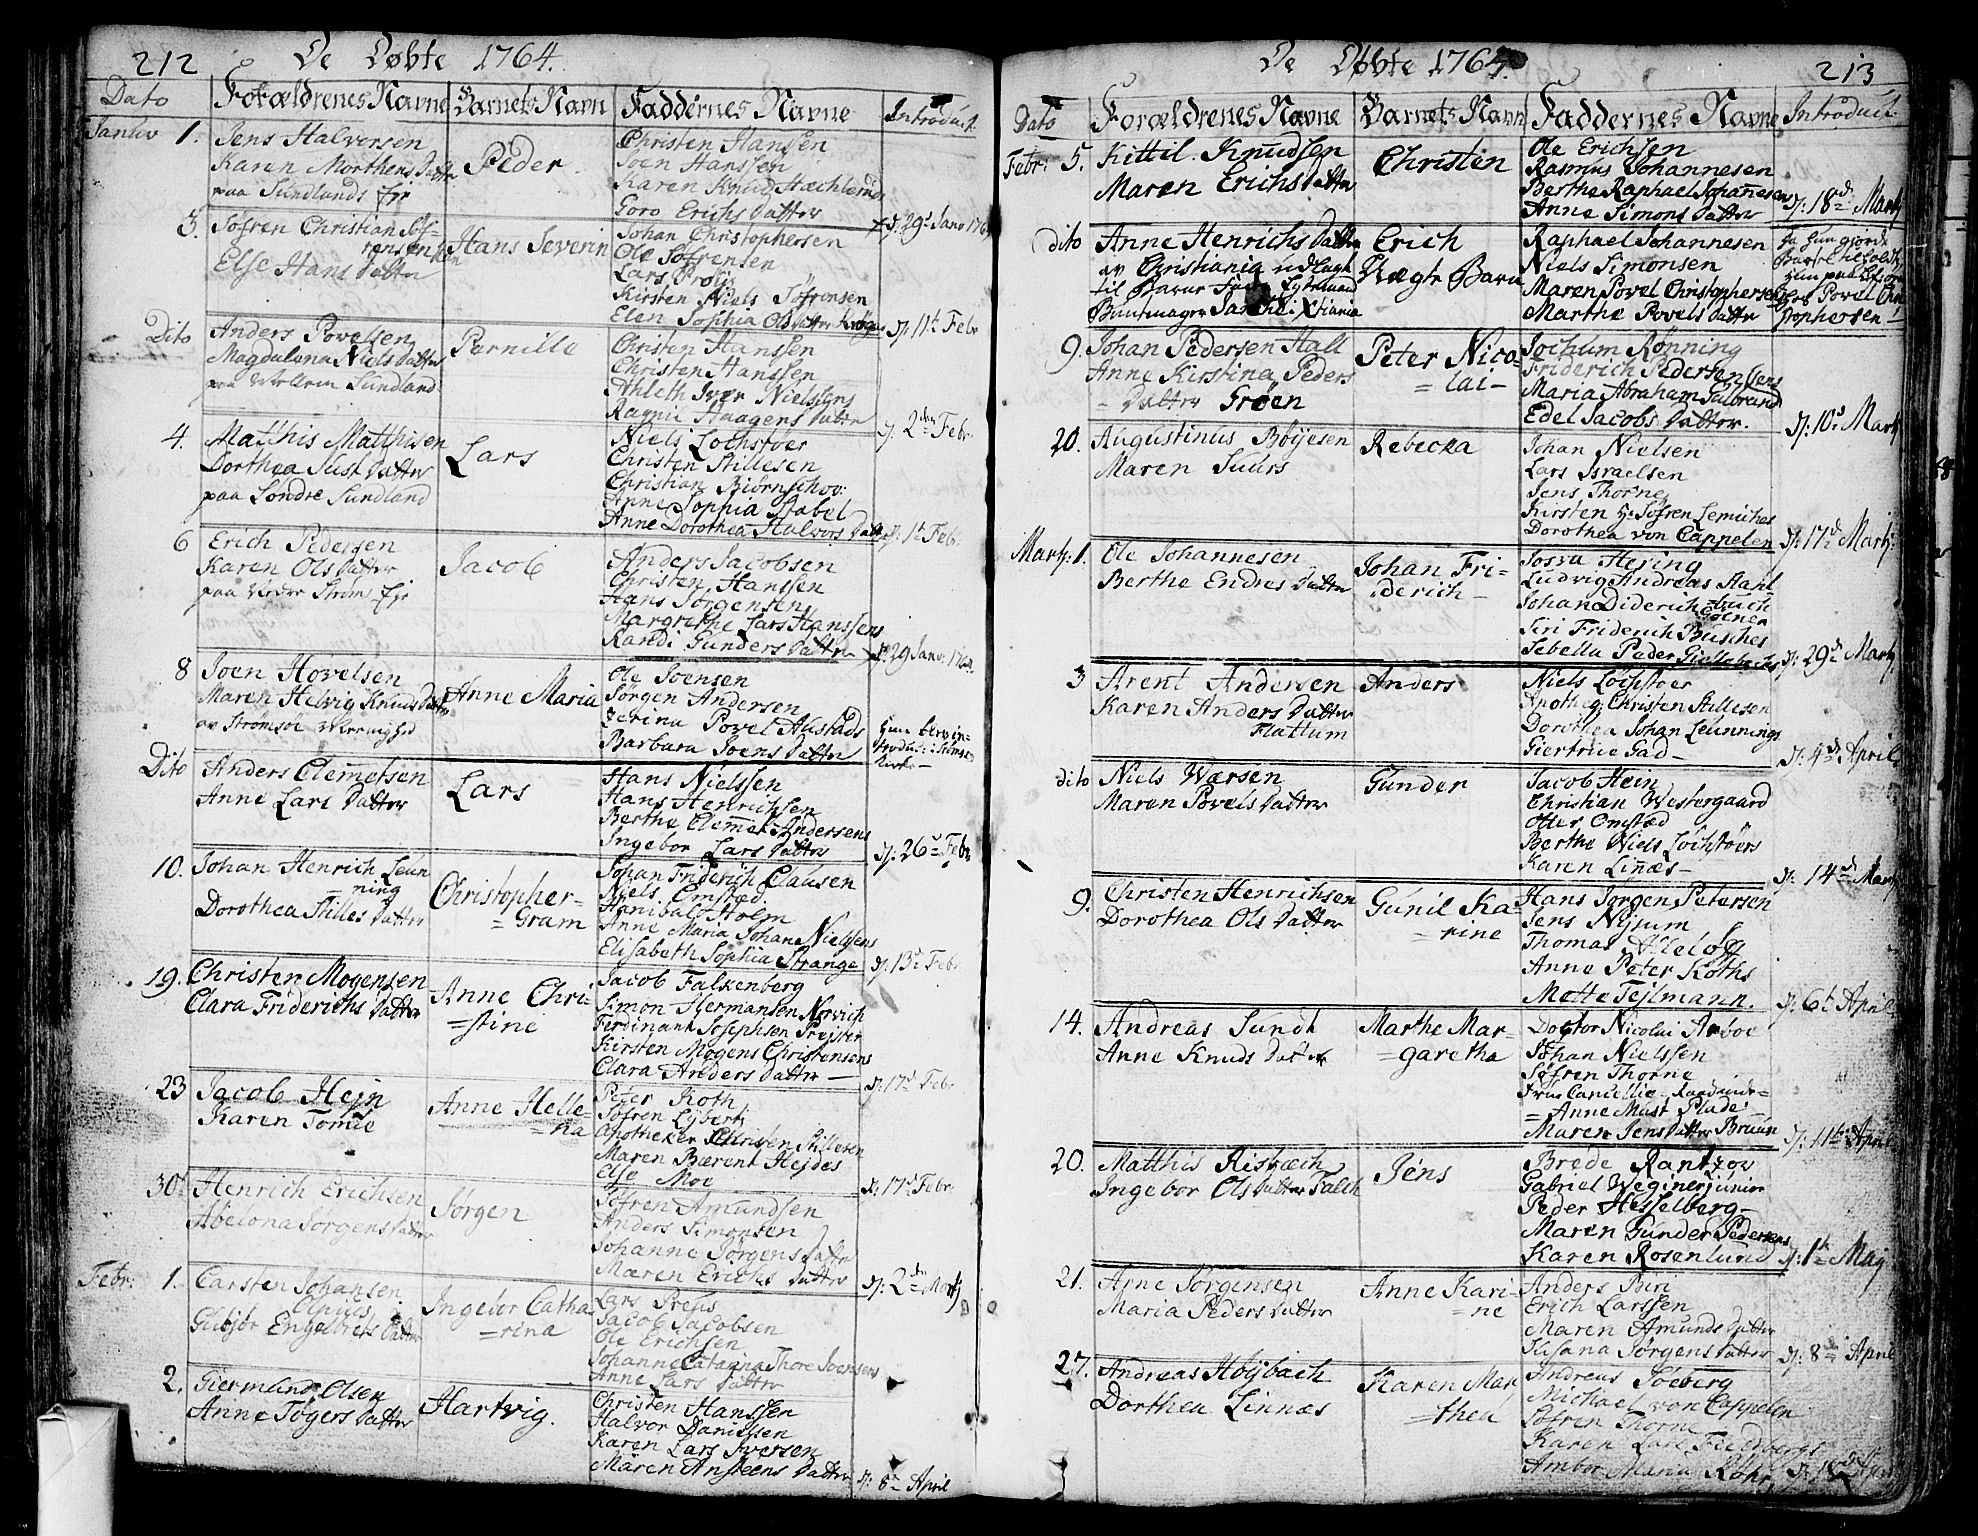 212 De Døbte 1764.
Dato Forældrenes Navne Barnets Navn Faddernes Navne Introduct.
Januv 1.
Jens Halversen
Karen Morthens Datter
paa Sundlands Eje
Peder
Christen Hanssen
Joen Hanssen
Karen Knud
Goro Erichs Datter
d: 29d Janv
3.
Søfren Christian Søf-
rensen
Else Hans Datter
Hans Severin
Johan Christophersen
Ole Søfrensen
Lars Prøijs
Kirsten Niels Söfrensen
Elen Sophia Ols Datter
d: 11te Febr
Dito
Anders Povelsen
Magdalena Niels Datter
paa Sundland
Pernille
Christen Hanssen
Christen Hanssen
Athleth Iver Nielssens
Ragnil Haagens Datter
d: 2den Febr
4.
Matthis Matthisen
Dorthea Just Datter
paa Søndre Sundland
Lars
Niels Lochstøer
Christen Stillesen
Christian Biørnschov:
Anne Sophia Stabel
Anne Dorothea Halvors Datter
d: 1te Feb.
6
Erich Pedersen
Karen Ols Datter
paa Strøm Eje
Jacob
Anders Jacobsen
Christen Hanssen
Hans Jørgensen
Margrethe Lars Hanssens
Randi Gunders Datter
d: 29 Janv: 1764
8
Joen Hovelsen
Maren Helvig Knuds Datter
av Strømsøe Menighed
Anne Maria
Ole Joensen
Jørgen Andersen
Zerina Povel Austads
Barbara Joens Datter
Dito
Anders Clemetsen
Anne Lars Datter
Lars
Hans Nielssen
Hans Henrichsen
Berthe Clemet Andersens
Ingebor Lars Datter
d: 26de Febr
10.
Johan Henrich Leun
=ning
Dorothea Stilles Datter
Christopher-
=Gram
Johan Friderich Clausen
Niels Omsted.
Hanibal Holm
Anne Maria Johan Nielsens
Elisabeth Sophia Strange
d: 13de Feb:
19.
Christen Mogensen
Clara Friderichs Datter
Anne Chri-
=stine
Jacob Falkenberg
Simon Hermansen Norvich
Ferdinant Josephsen Prejster
Kirsten Mogens Christensens
Clara Anders Datter
d: 17de Febr
23
Jacob Hejn
Karen Tomie
Anne Helle-
=na
Peter Roth
Søfren Lyberti
Apotheker Christen Stillesen
Maren Bærent Hejdes
Else Moe
d: 17de Febr
30te
Henrich Erichsen
Abelona Jørgens Datter
Jørgen
Søfren Amundsen
Anders Simonsen
Johanne Jørgens Datter
Maren Erichs Datter
d: 2den Martj
Febr. 1.
Carsten Johansen
Gubjør Engelbrets Datter
Ingebor Catha
=rina
Lars Prens
Jacob Jacobsen
Ole Erichsen
Johanne Catarina Thore Joensens
Anne Lars Datter
2.
Giermund Olsen
Anne Tøgers Datter
Hartvig.
Christen Hanssen
Halvor Danielssen
Karen Lars Iversen
Maren Ansteens Datter
d: 8de April
De Døbte 1764. 213
Dato Forældrenes Navne Barnets Navn Faddernes Navne Introduct.
Febr: 5.
Kittil. Knudsen
Maren Erichs Datter
Christen
Ole Erichsen
Rasmus Johannesen
Berthe Raphael Johannesen
Anne Simons Datter
d: 18de Martj
dito
Anne Henrichs Datter
av Christiania udlagt
til Barne Fader
Buntmager i Xtiania
Erich
Uægte Barn
Raphael Johannesen
Niels Simonsen
Maren Povel Christophersens
Marthe Povels Datter
hos Povel Chri
stophersen
9.
Johan Pedersen Hall
Anne Kirstina Peders
- Datter Grøen
Peter Nico-
=lai-
Jochum Rønning
Friderich Pedersen
Maria Abraham Gulbrandsens
Edel Jacobs Datter.
d: 10de Martj
20.
Augustinus Bøijesen
Maren Suurs
Rebecka
Johan Nielsen
Lars Israelsen
Jens Thorne
Kirsten Sl: Søfren Lemiches
Dorothea von Cappelen
d: 17de Martj:
Martj. 1.
Ole Johannesen
Berthe Endres Datter
Johan Fri-
=derich-
Josva Hejing
Ludvig Andreas Hant
Johan Diderich
Siri Friderich Busches
Sebella Peder
d: 29de Martj.
3
Arent Andersen
Karen Anders Datter
Flattum
Anders
Niels Lochstøer
Apotheq: Christen Stillesen
Dorothea Johan Leunnings
Giertrue Gad-
d: 4de April
dito
Niels Wærsen
Maren Povels Datter
Gunder
Jacob Hein
Christian Westergaard
Otter Omsted
Berthe Niels Lochstøers
Karen Linæs-
d: 14de
9.
Christen Henrichsen
Dorothea Ols Datter
Gunil Ka-
=rine
Hans Jørgen Petersen
Jens Nysum
Thomas
Anne Peter Roths
Mette Tejlmann.
d: 6te April
14.
Andreas Sundt
Anne Knuds Datter
Marthe Mar-
=garetha
Doctor Nicolai Arboe
Johan Nielssen
Søfren Thorne
Frue Cancellie-Raadinde-
=Anne Must Plade
Maren Jens Datter Bruun
d: 11te April
20.
Matthis Risbæch
Ingebor Ols Datter Falch
Jens
Brede Rantzov
Gabriel Weginer junior
Peder Hesselberg-
Maren Gunder Pedersens
Karen Rosenlund
d: 1te Maj
21.
Arne Jørgensen
Maria Peders Datter
Anne Kari-
=ne
Anders Biri
Erich Larssen
Maren Amunds Datter
Susana Jørgens Datter
d: 8de April
27.
Andreas Høijbach
Dorthea Linnæs
Karen Mar
=thea
Andreas Soeberg
Michael von Cappelen
Søfren Thorne
Karen Lars
Ambor Maria Röhr